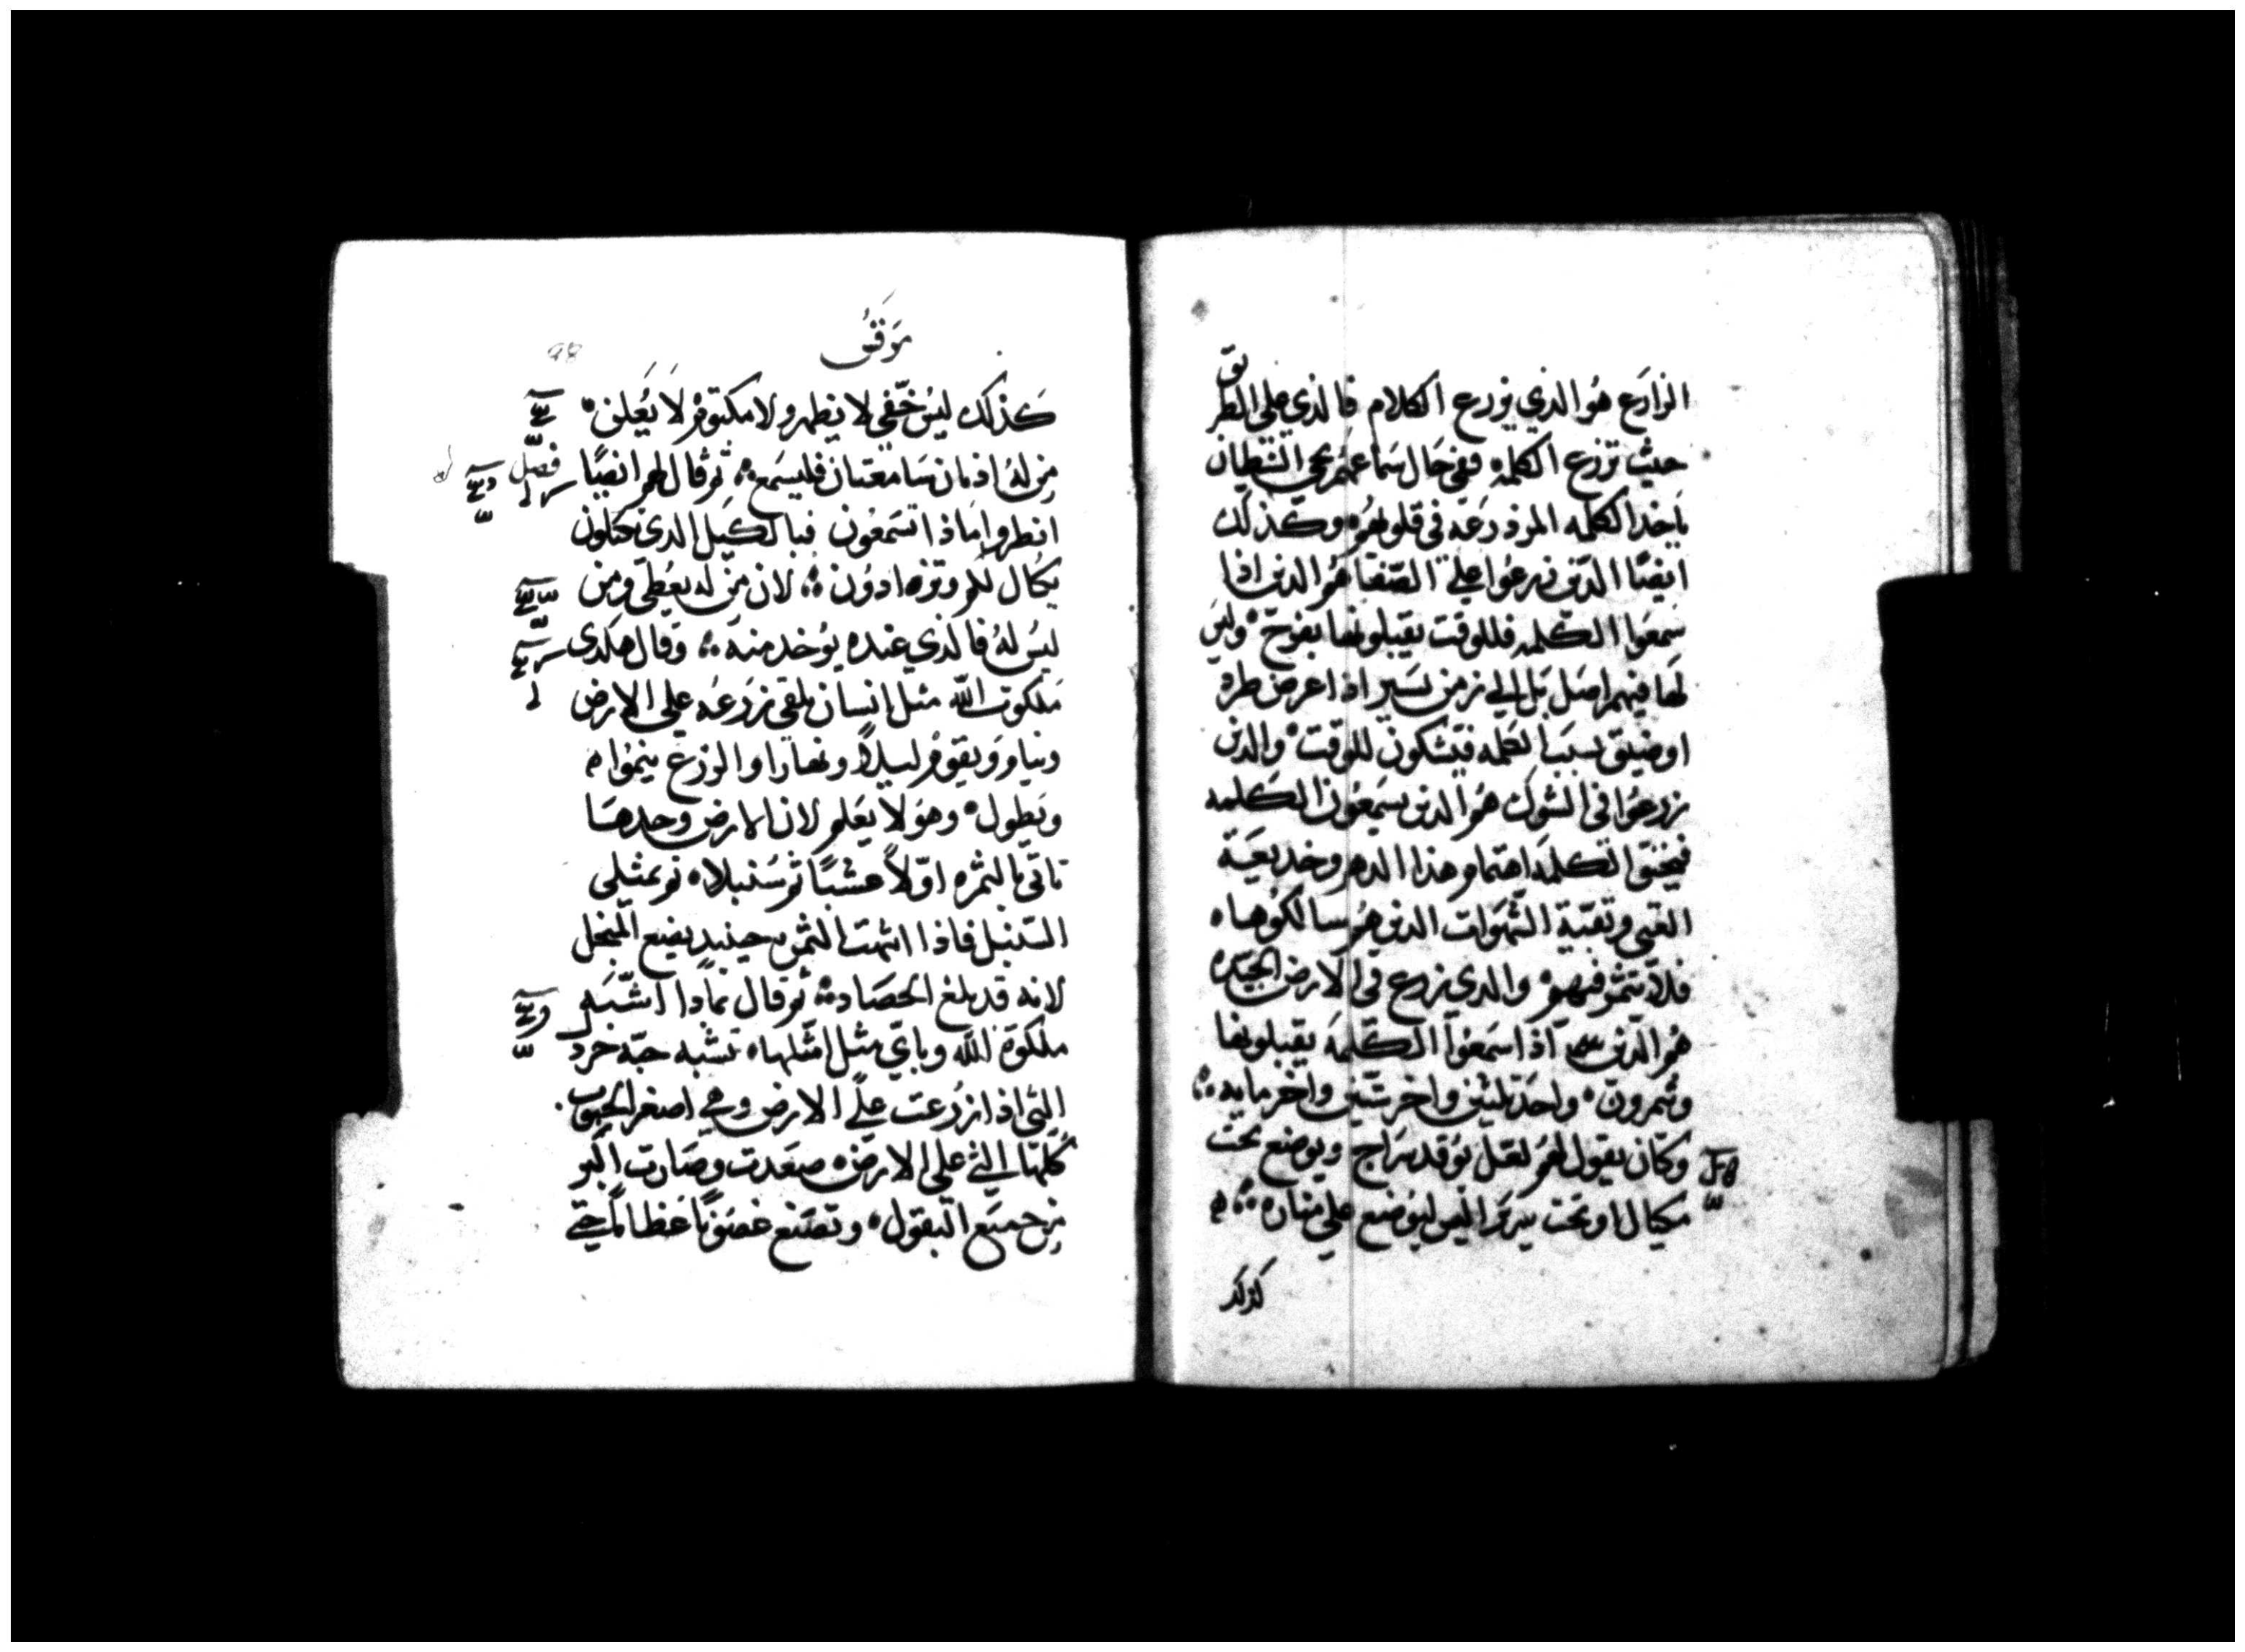 الزارع هو الذي يزرع الكلام فالذي على الطريق
حيث تزرع الكلمه ففي حال سماعهم يجي الشيطان
ياخد الكلمه المزدرعه في قلوبهم وكذلك
ايضًا الذين زرعوا على الصفا هم الدين اذا
سمعوا الكلمه فللوقت يقبلونها بفرح وليس
لها فيهم اصل بل الي زمن يسير اذا عرض طرد
او ضيق بسبب الكلمه فيشكون للوقت والدين
زرعوا في الشوك هم الدين يسمعون الكلمه
فيخنق الكلمه اهتمام هذا الدهر وخديعة
الغنى وبقية الشهوات الدين هم سالكوها
فلا تثمر فيهم والدي زرع في الارض الجيده
هم الدين اذا سمعوا الكلمة يقبلونها
ويثمرون واحد تلثين واخر ستين واخر مايه
وكان يقول لهم لعل يوقد سراج ويوضع تحت
مكيال او تحت سرير اليس ليوضع علي مناره
كذلك
مرقس
98
كذلك ليس خفي لا يظهر ولا مكتوم لا يعلن
من له اذنان سامعتان فليسمع ثم قال لهم ايضًا
فصل
انظروا ماذا تسمعون فبالكيل الدي تكيلون
يكال لكم وتزدادون لان من له يعطى ومن
ليس له فالذي عنده يوخد منه وقال هكدى
ملكوت الله مثل انسان يلقي زرعه على الارض
وينام ويقوم ليلًا ونهارا والزرع ينموا
ويطول وهو لا يعلم لان الارض وحدها
تاتي بالثمره اولًا عشبًا ثم سنبلا ثم يمتلي
السنبل فاذا انتهت الثمره حينيد يضع المنجل
لانه قد بلغ الحصاد ثم قال بمادا اشبه
ملكوة الله وباي مثل امثلها تشبه حبه خرد
التي اذا زرعت على الارض وهي اصغر الحبوب
كلها التي على الارض صعدت وصارت اكبر
من جميع البقول وتصنع غصونًا عظامًا حتي